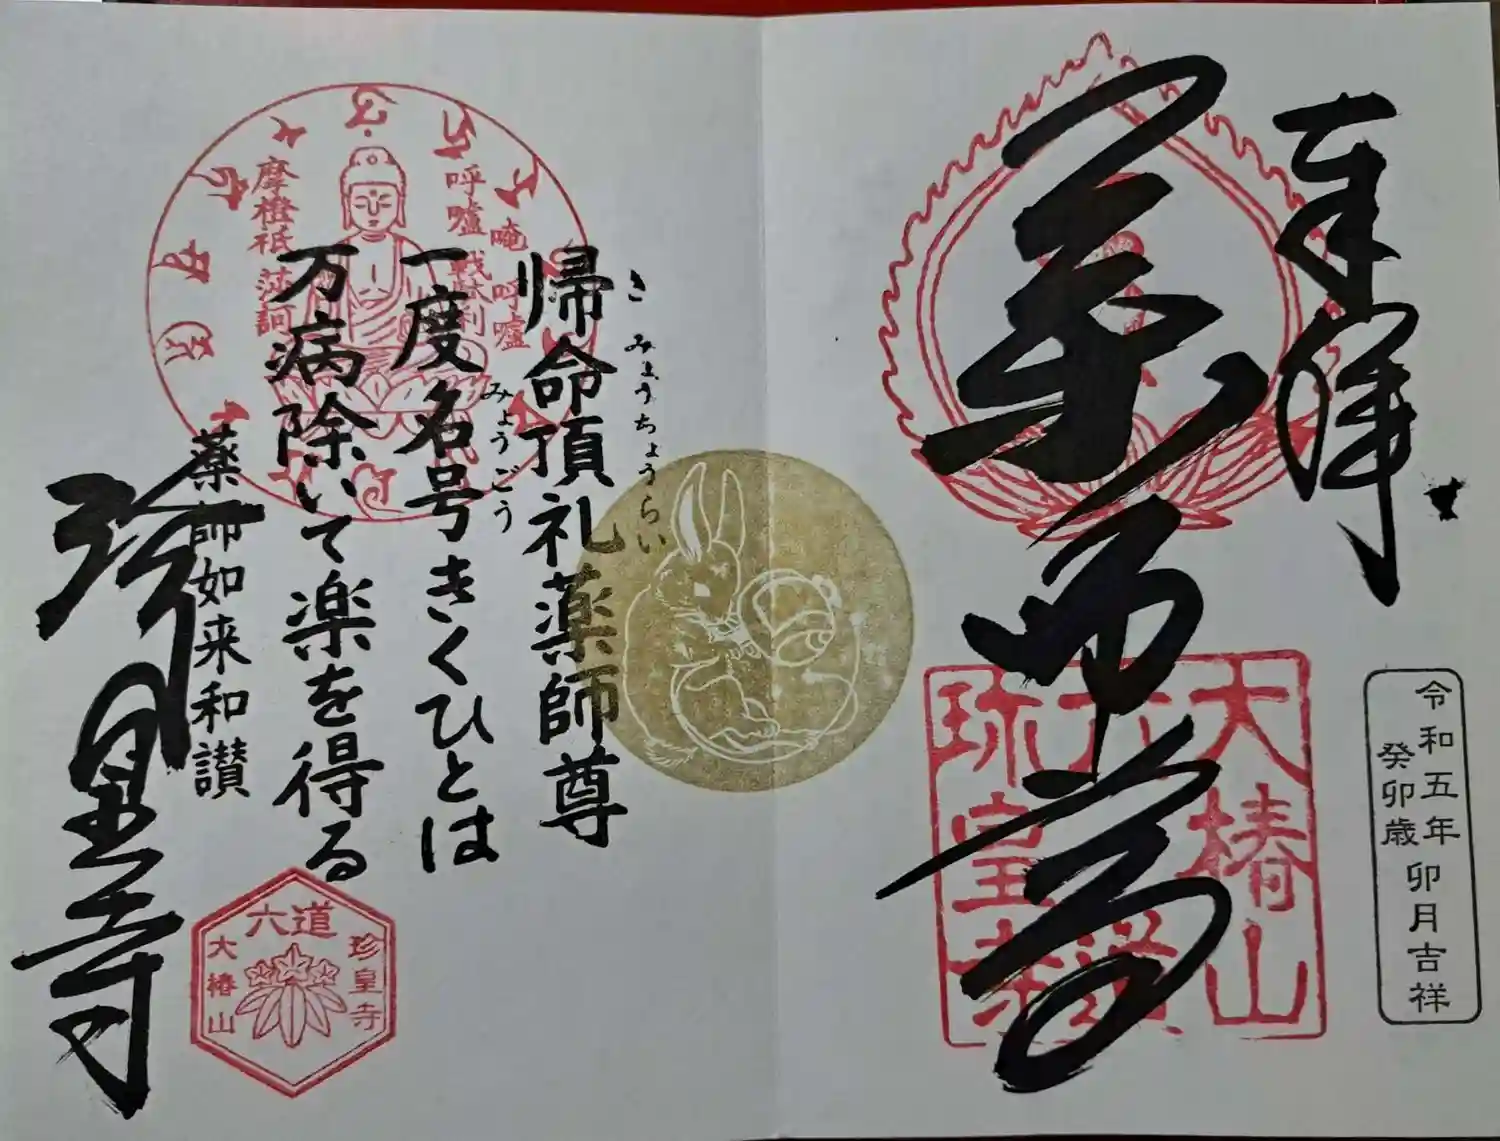 奉拝
薬師尊
大椿山
六道
珍皇寺
令和五年 卯月吉祥
癸卯歳
唵 呼嚧
呼嚧 戦駄利
摩橙祇 莎訶
き みょうちょうらい
帰命頂礼薬師尊
みょうごう
一度名号きくひとは
万病除いて楽を得る
薬師如来和讃
珍皇寺
六道
珍皇寺
大椿山